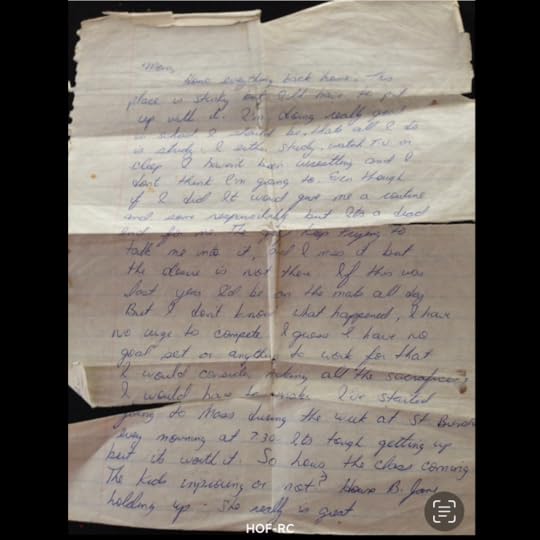 Mom,
hows everything back home. This
place is study but I'll have to put
up with it. I'm doing really good
in school I should be, thats all I do
is study. I either study, watch T.V. or
sleep I havent been wrestling and I
dont think I'm going to. Even though
if I did It would give me a routine
and some responsibility but Its a dead
end for me. The keep trying to
talk me into it, and I miss it but
the desire is not there If this was
last year I'd be on the mats all day
But I don't know what happened, I have
no urge to compete I guess I have no
goal set or anything to work for that
I would consider making all the sacrifices
I would have to make. I've started
going to Mass during the week at St
every morning at 7:30 Its tough getting up
but its worth it. So hows the class coming
The kids improving or not? Hows B. Jane
holding up - she really is great
HOF-RC